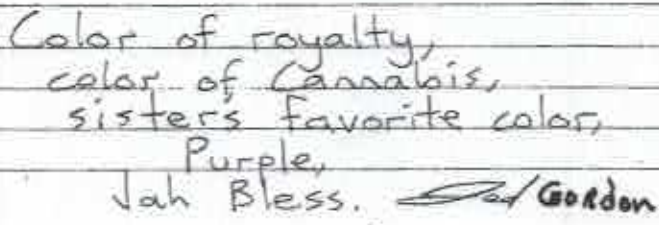 Color of royalty,
color of Cannabis,
sister's favorite color,
Purple,
Jah Bless. Gordon